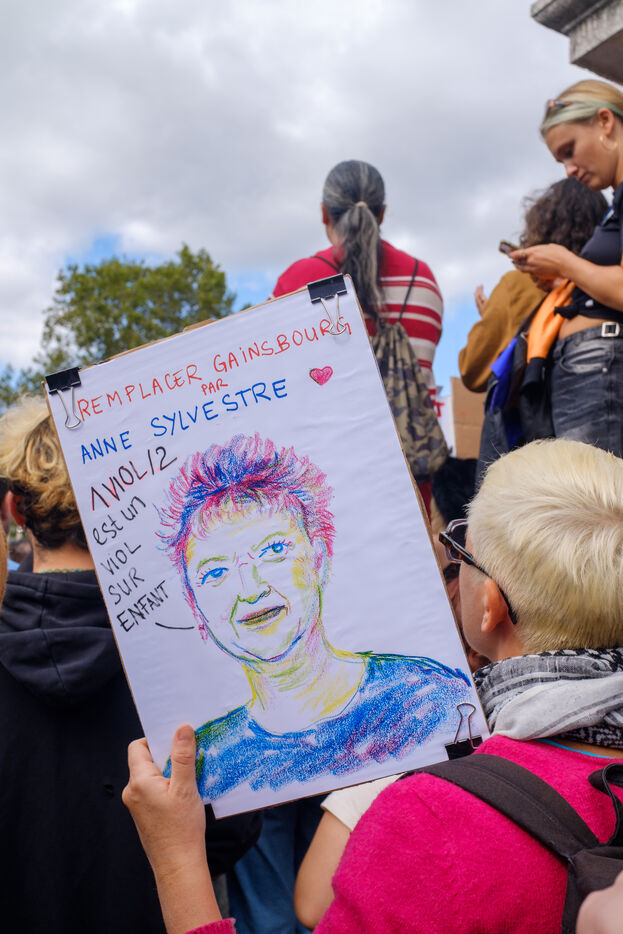 REMPLACER GAINSBOURG
PAR
ANNE SYLVESTRE
1 VIOL/2
est un
VIOL
SUR
ENFANT